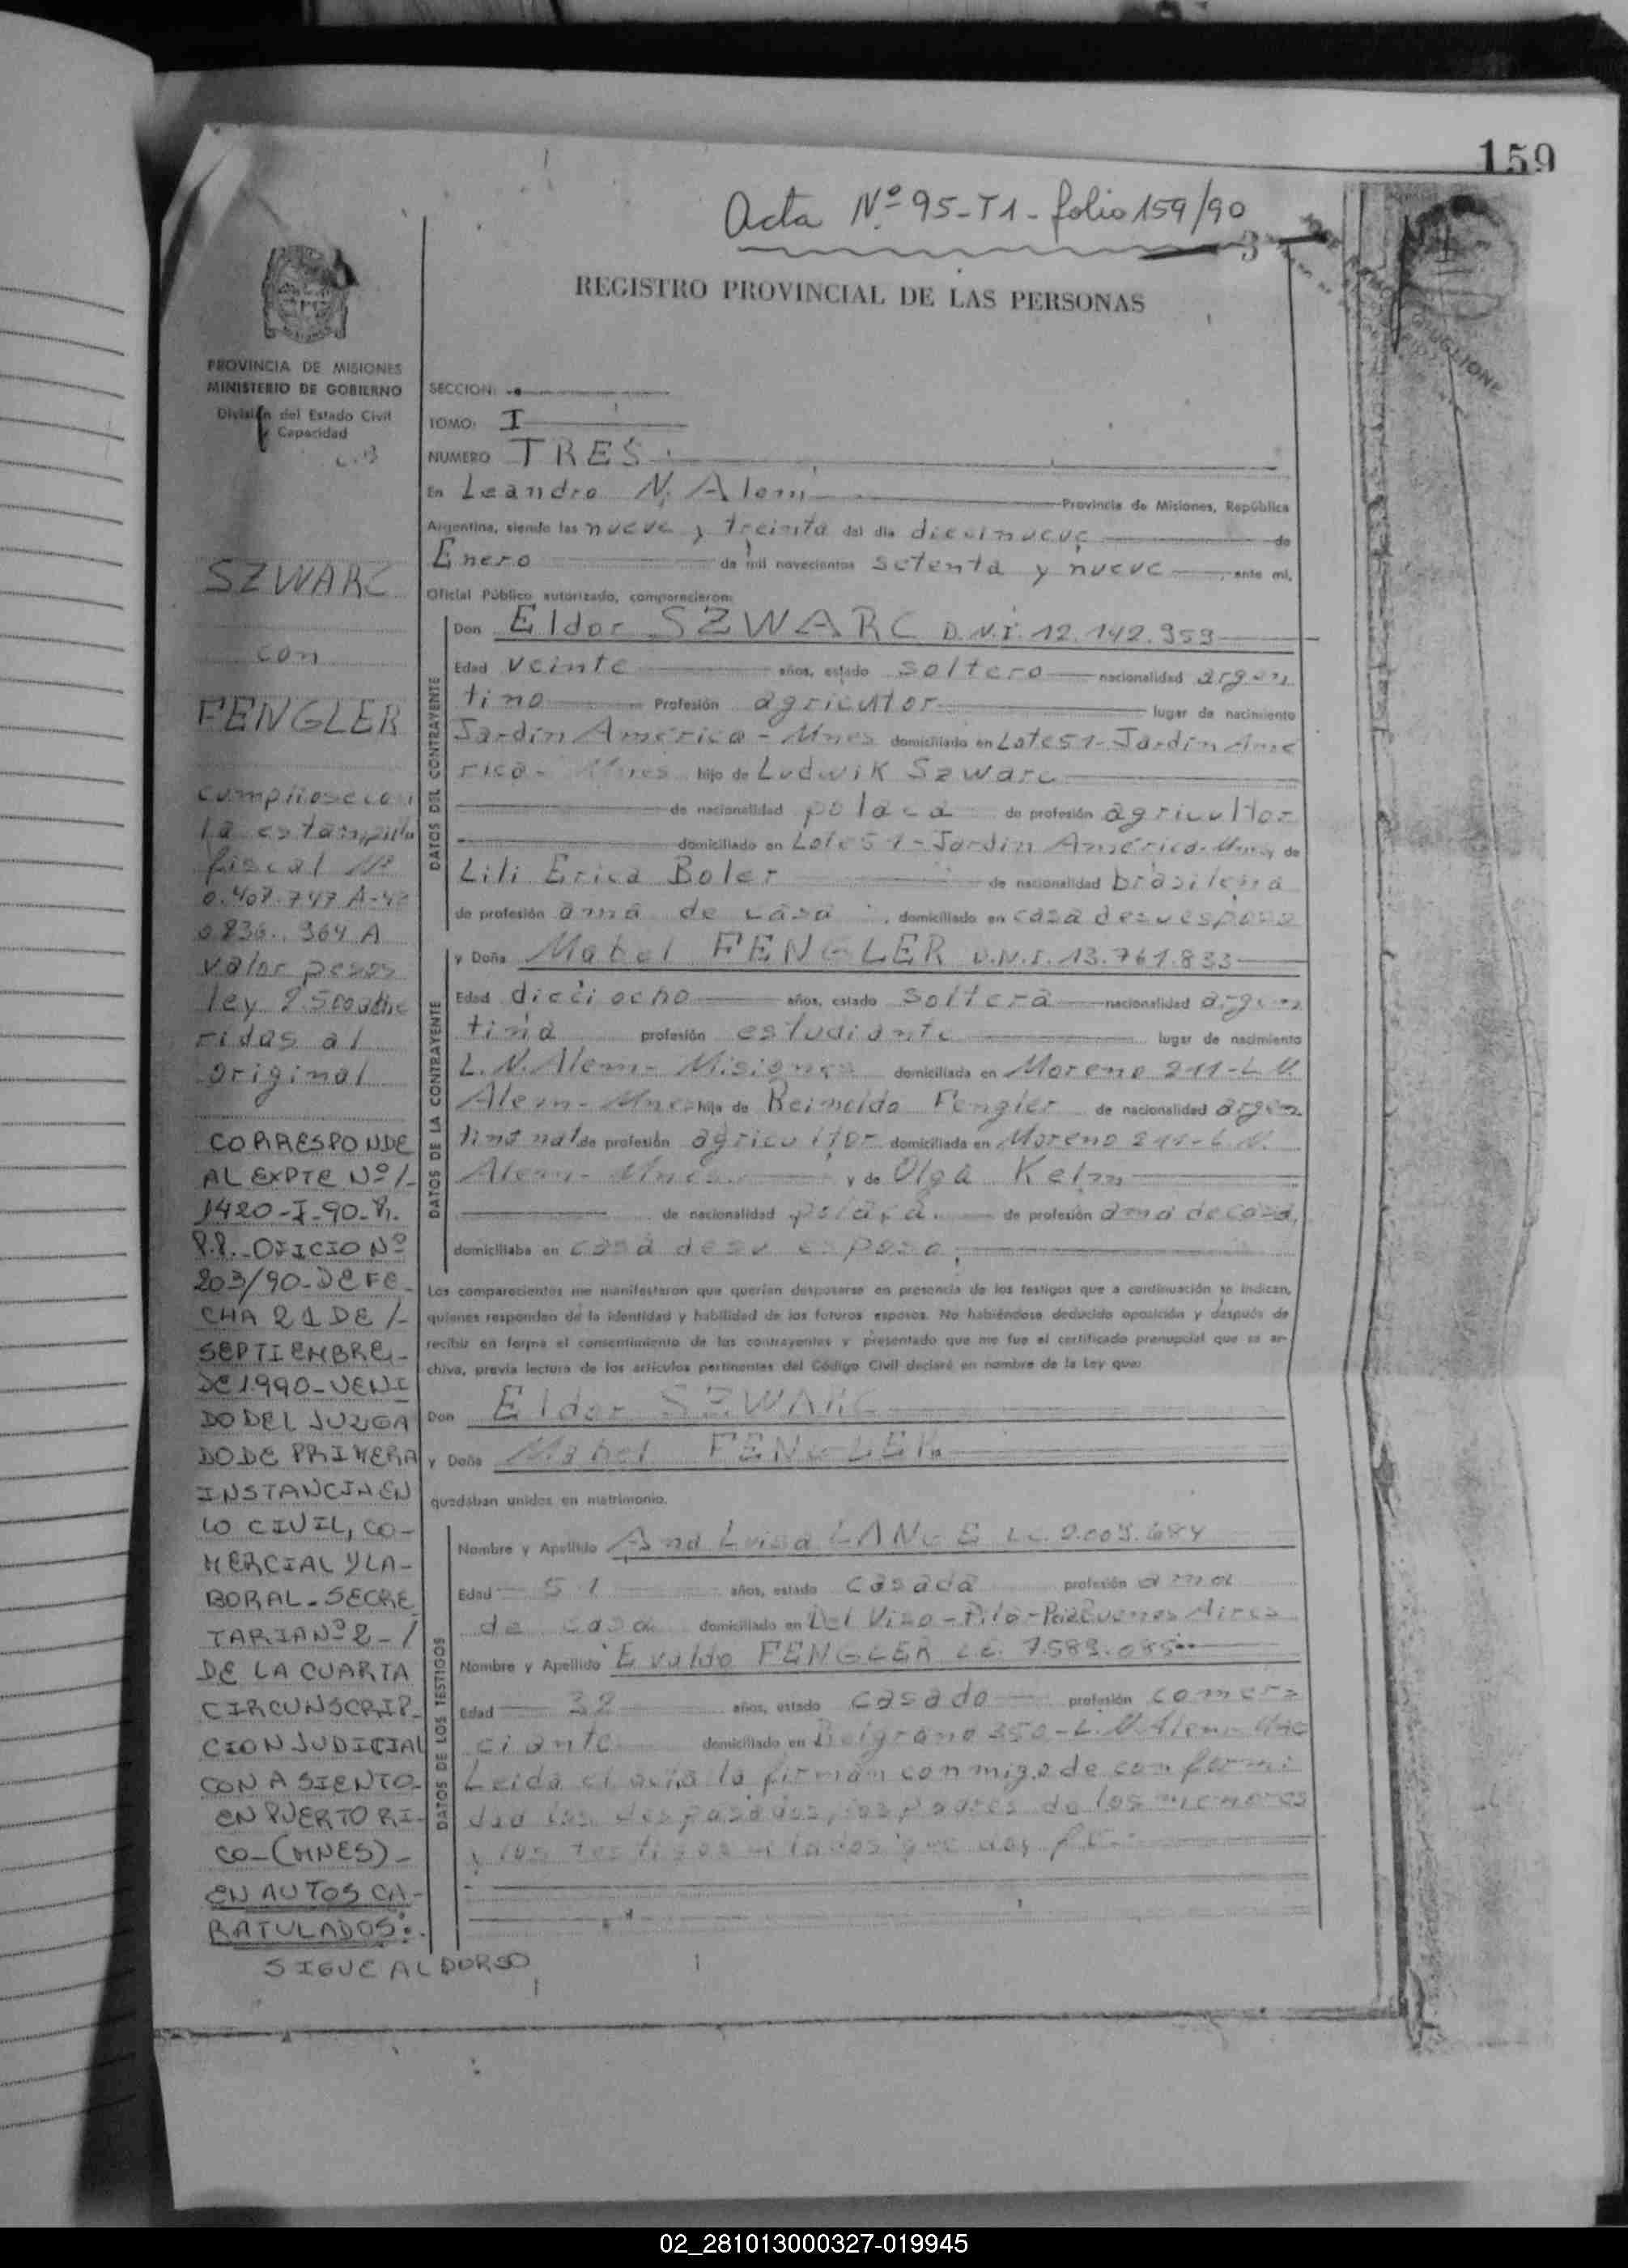 159
Acta Nº 95-T1-folio 159/90
3
REGISTRO PROVINCIAL DE LAS PERSONAS
PROVINCIA DE MISIONES
MINISTERIO DE GOBIERNO
División del Estado Civil
y Capacidad
SZWARC
con
FENGLER
cumpliose con
la estampilla
fiscal Nº
valor pesos
ridas al
original
CORRESPONDE
AL EXPTE Nº/-
1420-I-90-
OFICIO Nº
203/90-DE FE-
CHA 21 DE /-
SEPTIEMBRE-
DE 1.990-VENI
DO DEL JUZGA
DO DE PRIMERA
INSTANCIA EN
LO CIVIL, CO-
MERCIAL Y LA-
BORAL-SECRE
TARIA Nº 2-/
DE LA CUARTA
CIRCUNSCRIP-
CION JUDICIAL
CON ASIENTO-
EN PUERTO RI-
CO-(MNES)-
EN AUTOS CA-
RATULADOS:.
SIGUE AL DORSO
SECCION:
TOMO: I
NUMERO TRES
En Leandro N. Alem Provincia de Misiones, República
Argentina, siendo las nueve y treinta del dia diecinueve de
Enero de mil novecientos setenta y nueve ante mi,
Oficial Público autorizado, comparecieron:
DATOS DEL CONTRAYENTE
Don Eldor SZWARC D.N.I. 12.142.959
Edad veinte años, estado soltero nacionalidad argen
tino Profesión agricultor lugar de nacimiento
Jardín América - Mnes domiciliado en Lote 51-Jardín Amé
rica- Mnes hijo de Ludwik Szwarc
de nacionalidad polaca de profesión agricultor
domiciliado en Lote 51-Jardín América-Mnes y de
Lili Erica Boler de nacionalidad brasileña
de profesión ama de casa, domiciliado en casa de su esposo
DATOS DE LA CONTRAYENTE
y Doña Mabel FENGLER D.N.I. 13.761.833
Edad dieciocho años, estado soltera nacionalidad argen
tina profesión estudiante lugar de nacimiento
L.N.Alem- Misiones domiciliada en Moreno 211-L.N.
Alem-Mnes hija de Reinoldo Fengler de nacionalidad argen
tino nat. de profesión agricultor domiciliada en Moreno 211-L.N.
Alem-Mnes. y de Olga Kelm
de nacionalidad polaca de profesión ama de casa,
domiciliaba en casa de su esposo
Los comparecientes me manifestaron que querían desposarse en presencia de los testigos que a continuación se indican,
quienes responden de la identidad y habilidad de los futuros esposos. No habiéndose deducido oposición y después de
recibir en forma el consentimiento de los contrayentes y presentado que me fue el certificado prenupcial que se ar-
chiva, previa lectura de los artículos pertinentes del Código Civil declaré en nombre de la Ley que:
Don Eldor SZWARC
y Doña Mabel FENGLER
quedaban unidos en matrimonio.
DATOS DE LOS TESTIGOS
Nombre y Apellido Ana Luisa LANGE L.C.
Edad 51 años, estado casada profesión ama
de casa domiciliado en Del Viso-Pilar-Buenos Aires
Nombre y Apellido Evaldo FENGLER L.E. 7.589.085
Edad 32 años, estado casado profesión comer
ciante domiciliado en Belgrano 350-L.N.Alem-Mnes
Leida el acta la firman conmigo de conformi
dad los desposados, los padres de los menores
y los testigos citados que doy fe.
02_281013000327-019945